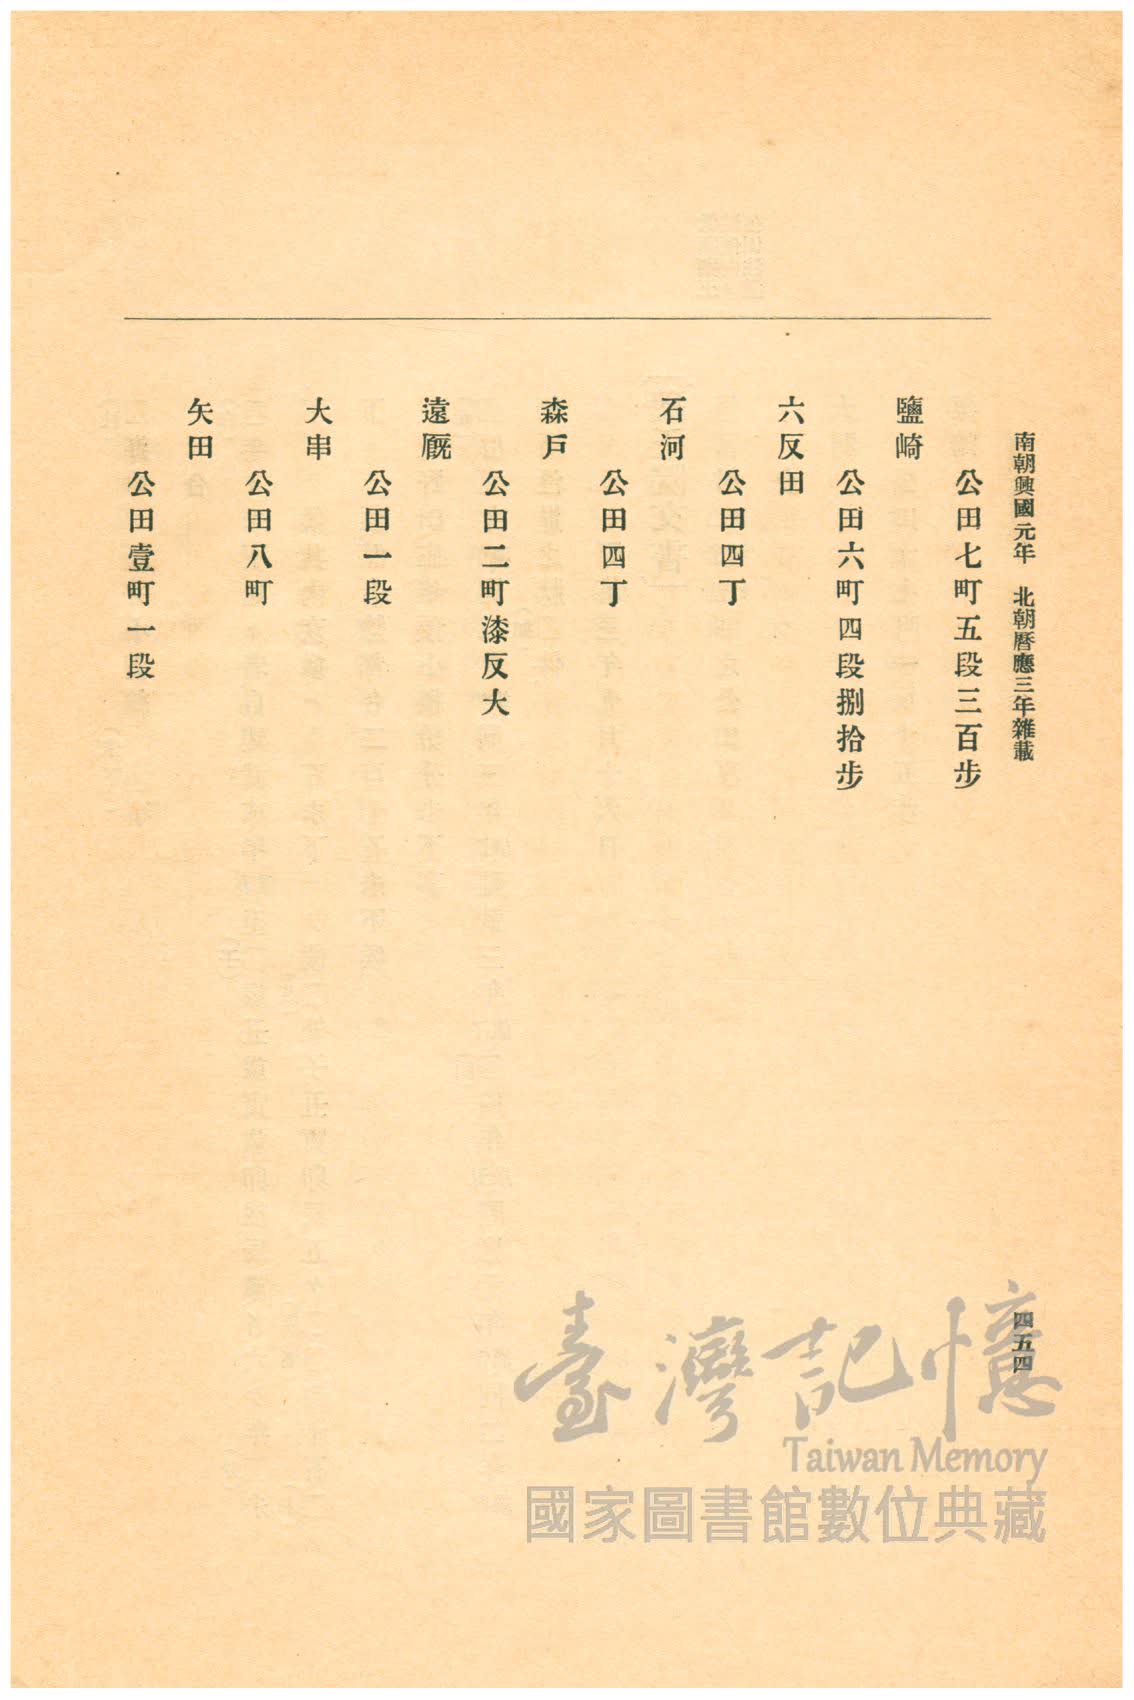 南朝興國元年　北朝曆應三年雜載
四五四
公田七町五段三百步
鹽崎
公田六町四段捌拾步
六反田
公田四丁
石河
公田四丁
森戶
公田二町漆反大
遠厩
公田一段
大串
公田八町
矢田
公田壹町一段
臺灣記憶
Taiwan Memory
國家圖書館數位典藏